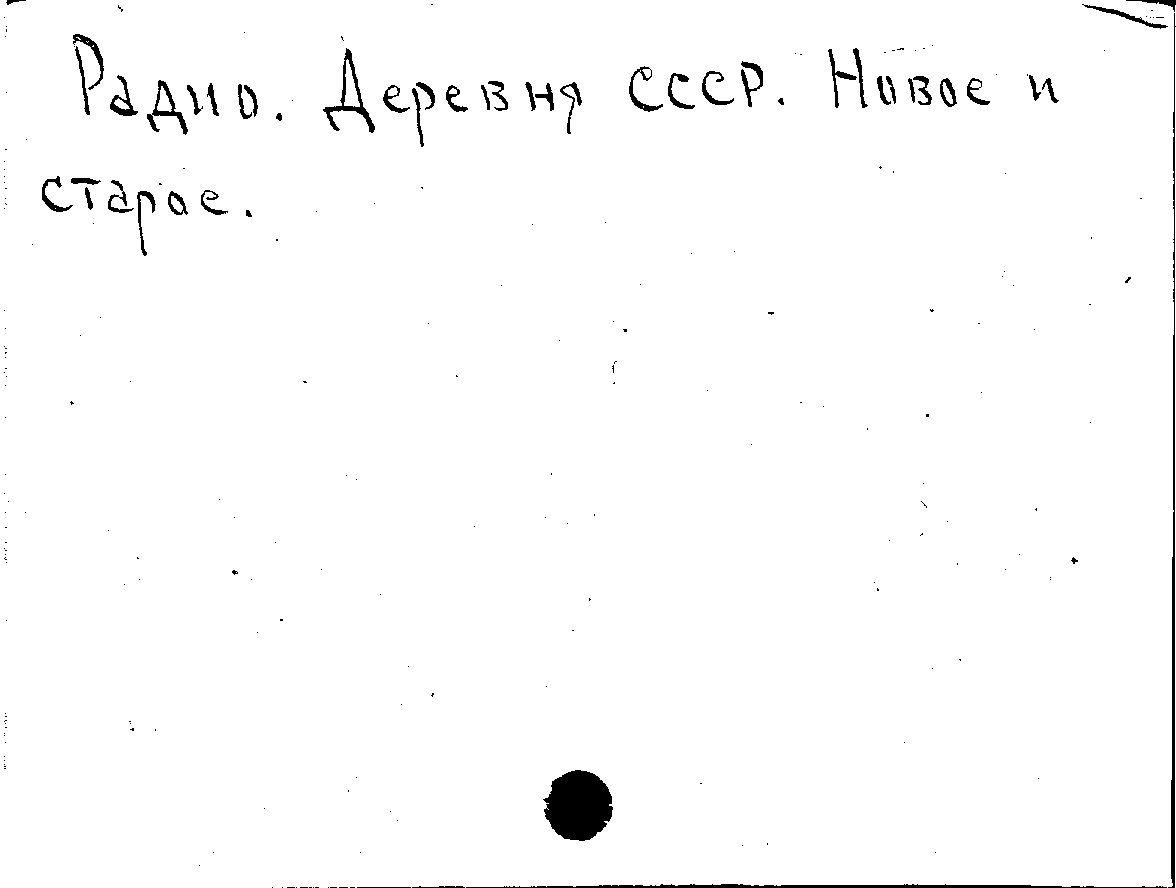 Радио. Деревня СССР. Новое и
старое.